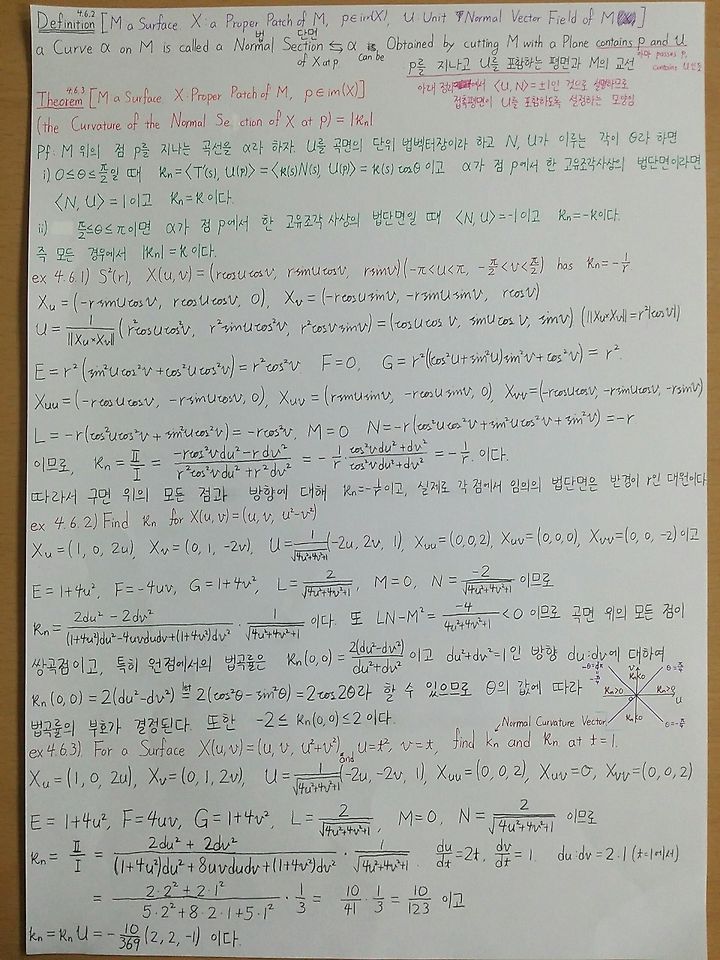 4.6.2
Definition [M a Surface. X: a Proper Patch of M, p∈im(X), U: Unit Normal Vector Field of M]
법 단면
a Curve α on M is called a Normal Section of X at p ⇆ α can be Obtained by cutting M with a Plane contains p and U
p를 지나고 U를 포함하는 평면과 M의 교선
4.6.3
Theorem [M a Surface X: Proper Patch of M, p∈im(X)]
아래 정리에서 <U, N> = ±1인 것으로 설명하므로
접촉평면이 U를 포함하도록 설정하는 모양임
(the Curvature of the Normal Section of X at p) = |kn|
Pf: M 위의 점 p를 지나는 곡선을 α라 하자. U를 곡면의 단위 법벡터장이라 하고 N, U가 이루는 각이 θ라 하면
i) 0≤θ≤π/2일 때 kn = <T'(s), U(p)> = <k(s)N(s), U(p)> = k(s) cosθ 이고 α가 점 p에서 한 고유조각사상의 법단면이라면
<N, U> = 1이고 kn = k이다.
ii) π/2≤θ≤π이면 α가 점 p에서 한 고유조각 사상의 법단면일 때 <N, U> = -1이고 kn = -k이다.
즉 모든 경우에서 |kn| = k이다.
ex 4.6.1) S²(r), X(u, v) = (rcosucosv, rsinucosv, rsinv) (-π<u<π, -π/2<v<π/2) has kn = -1/r
Xu = (-rsinucosv, rcosucosv, 0), Xv = (-rcosusinv, -rsinusinv, rcosv)
U = 1/||Xu×Xv|| (r²cosucos²v, r²sinucos²v, r²cosvsinv) = (cosucosv, sinucosv, sinv) (||Xu×Xv|| = r²|cosv|)
E = r²(sin²ucos²v + cos²ucos²v) = r²cos²v F = 0, G = r²((cos²u + sin²u)sin²v + cos²v) = r².
Xuu = (-rcosucosv, -rsinucosv, 0), Xuv = (rsinusinv, -rcosusinv, 0), Xvv = (-rcosucosv, -rsinucosv, -rsinv)
L = -r(cos²ucos²v + sin²ucos²v) = -rcos²v, M = 0 N = -r(cos²ucos²v + sin²ucos²v + sin²v) = -r
이므로, kn = Ⅱ/Ⅰ = (-rcos²vdu² - rdv²)/(r²cos²vdu² + r²dv²) = -1/r · (cos²vdu² + dv²)/(cos²vdu² + dv²) = -1/r. 이다.
따라서 구면 위의 모든 점과 방향에 대해 kn = -1/r이고, 실제로 각 점에서 임의의 법단면은 반경이 r인 대원이다
ex 4.6.2) Find kn for X(u, v) = (u, v, u²-v²)
Xu = (1, 0, 2u), Xv = (0, 1, -2v), U = 1/√(4u²+4v²+1) (-2u, 2v, 1), Xuu = (0, 0, 2), Xuv = (0, 0, 0), Xvv = (0, 0, -2) 이고
E = 1+4u², F = -4uv, G = 1+4v², L = 2/√(4u²+4v²+1), M = 0, N = -2/√(4u²+4v²+1) 이므로
kn = (2du² - 2dv²)/((1+4u²)du² - 8uvdudv + (1+4v²)dv²) · 1/√(4u²+4v²+1) 이다. 또 LN-M² = -4/(4u²+4v²+1) < 0 이므로 곡면 위의 모든 점이
쌍곡점이고, 특히 원점에서의 법곡률은 kn(0, 0) = 2(du²-dv²)/(du²+dv²) 이고 du²+dv²=1인 방향 du:dv에 대하여
kn(0, 0) = 2(du²-dv²) = 2(cos²θ - sin²θ) = 2cos2θ라 할 수 있으므로 θ의 값에 따라
법곡률의 부호가 결정된다. 또한 -2 ≤ kn(0, 0) ≤ 2이다.
Normal Curvature Vector
ex 4.6.3) For a Surface X(u, v) = (u, v, u²+v²) and u = t², v = t, find kn and kn at t = 1.
Xu = (1, 0, 2u), Xv = (0, 1, 2v), U = 1/√(4u²+4v²+1) (-2u, -2v, 1), Xuu = (0, 0, 2), Xuv = 0, Xvv = (0, 0, 2)
E = 1+4u², F = 4uv, G = 1+4v², L = 2/√(4u²+4v²+1), M = 0, N = 2/√(4u²+4v²+1) 이므로
kn = Ⅱ/Ⅰ = (2du² + 2dv²)/((1+4u²)du² + 8uvdudv + (1+4v²)dv²) · 1/√(4u²+4v²+1). du/dt = 2t, dv/dt = 1. du:dv = 2:1 (t=1에서)
= (2·2² + 2·1²)/(5·2² + 8·2·1 + 5·1²) · 1/3 = 10/41 · 1/3 = 10/123 이고
kn = kn U = -10/369 (2, 2, -1) 이다.